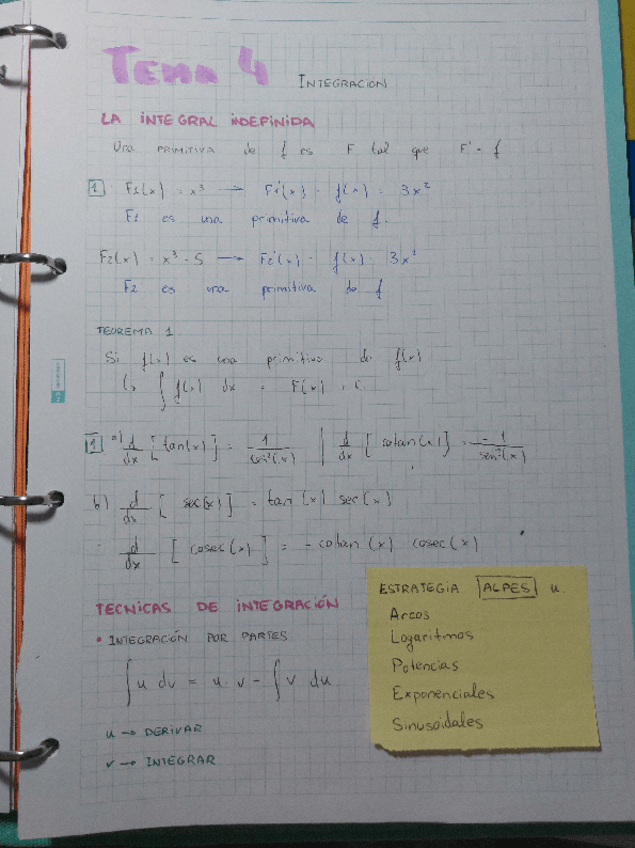 Tema 4 INTEGRACIÓN
LA INTEGRAL INDEFINIDA
Una PRIMITIVA de f es F tal que F' = f
1 F1(x) = x³ → F1'(x) = f(x) = 3x²
F1 es una primitiva de f.
F2(x) = x³ - 5 → F2'(x) = f(x) = 3x²
F2 es una primitiva de f
TEOREMA 1
Si f(x) es una primitiva de f(x)
↳ ∫ f(x) dx = F(x) + C
1 a) d/dx [tan(x)] = 1/cos²(x) | d/dx [cotan(x)] = -1/sen²(x)
b) d/dx [sec(x)] = tan(x) sec(x)
d/dx [cosec(x)] = -cotan(x) cosec(x)
TECNICAS DE INTEGRACIÓN
• INTEGRACIÓN POR PARTES
∫ u dv = u · v - ∫ v du
u → DERIVAR
v → INTEGRAR
ESTRATEGIA ALPES u
Arcos
Logaritmos
Potencias
Exponenciales
Sinusoidales